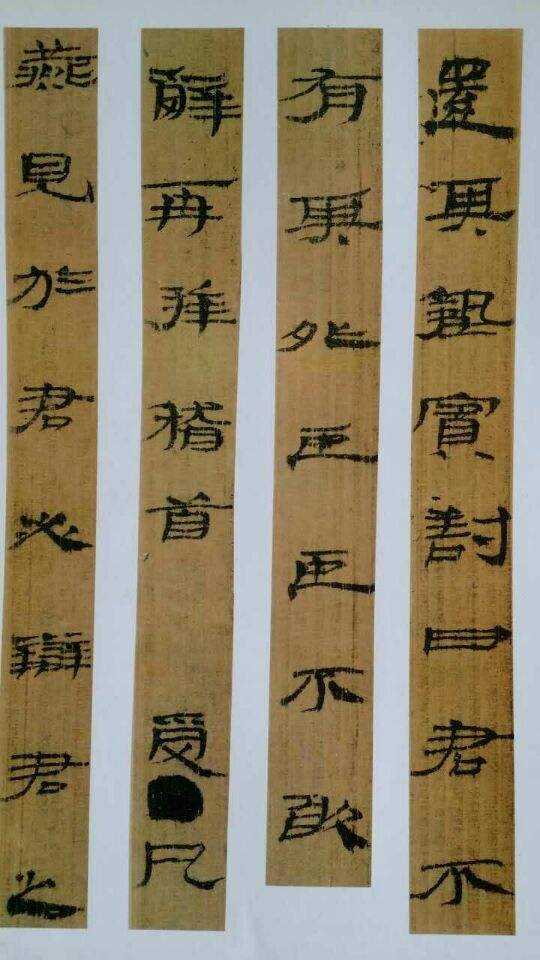 還其摯賓對曰君不
有其外臣臣不敢
辭再拜稽首 受●凡
燕見於君必辯君之